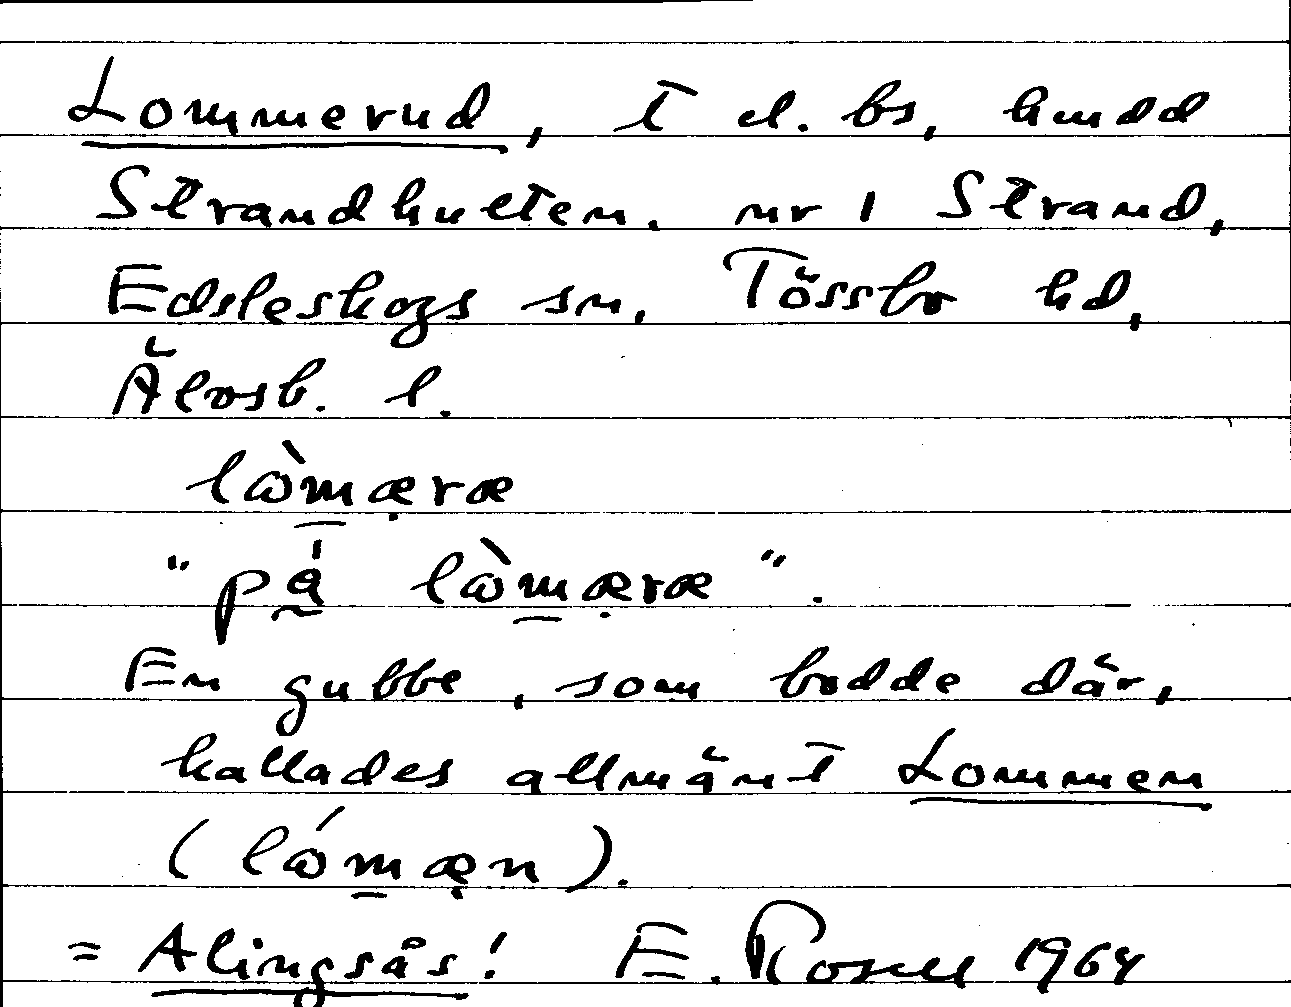 Lommerud, t el. bs, hmdd
Strandhulten. nr 1 Strand,
Edsleskogs sn, Tössbo hd,
Älvsb. l.
lὼmæræ
"på lὼmæræ".
En gubbe, som bodde där,
kallades allmänt Lommen
(lώmæn).
= Alingsås! E. Rosell 1964